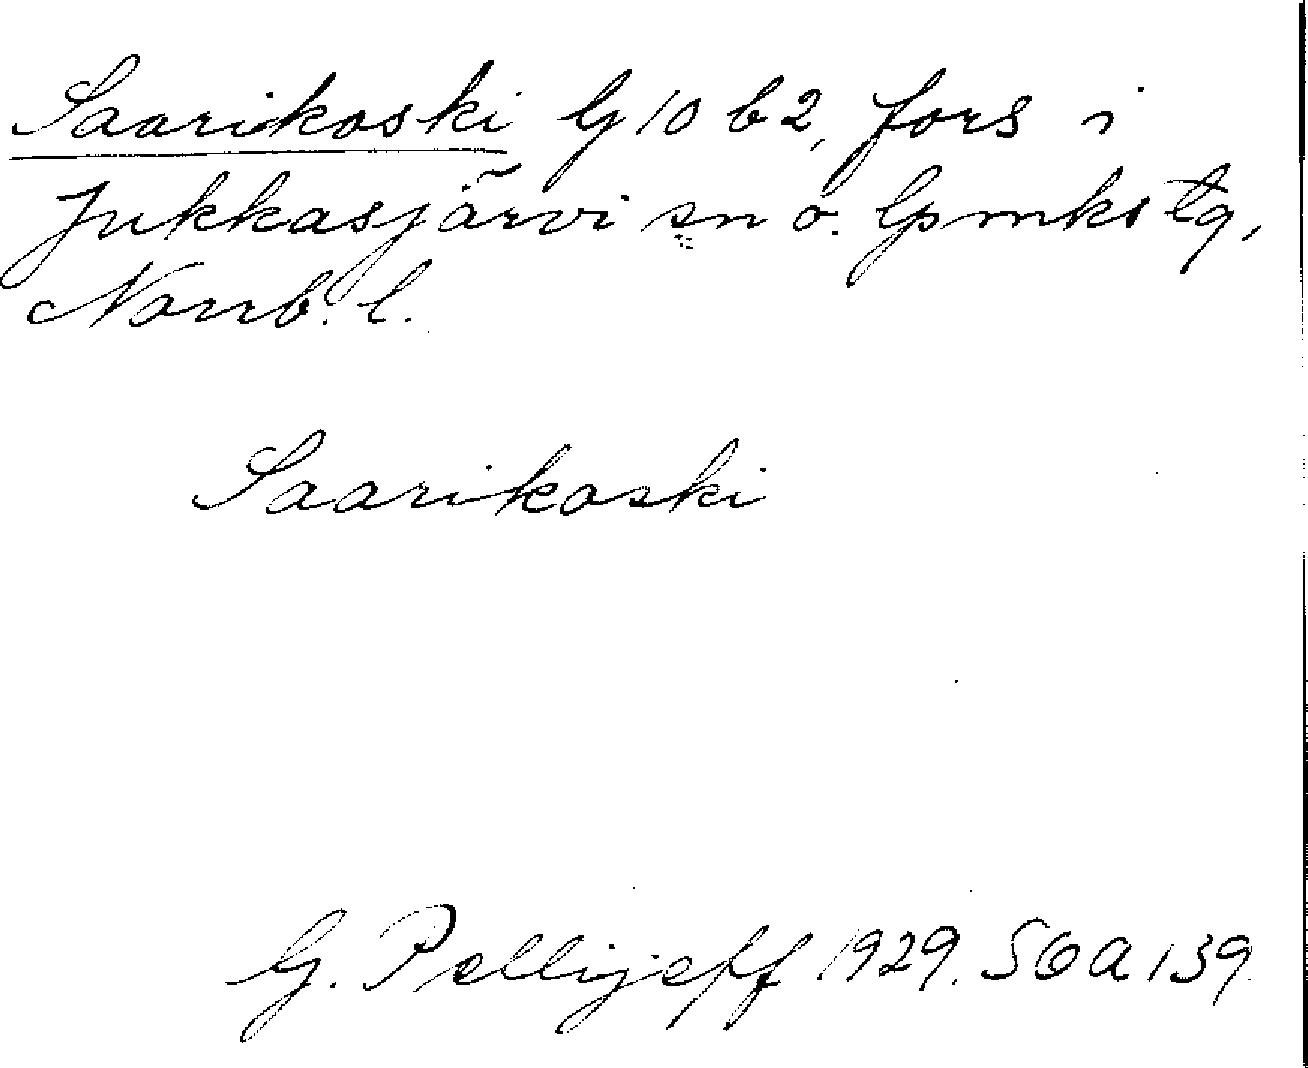 Saarikoski G 10 b 2, fors i
Jukkasjärvi sn o. lpmkstg,
Norrb. l.
Saarikoski
G. Pellijeff 1929. SOA 139